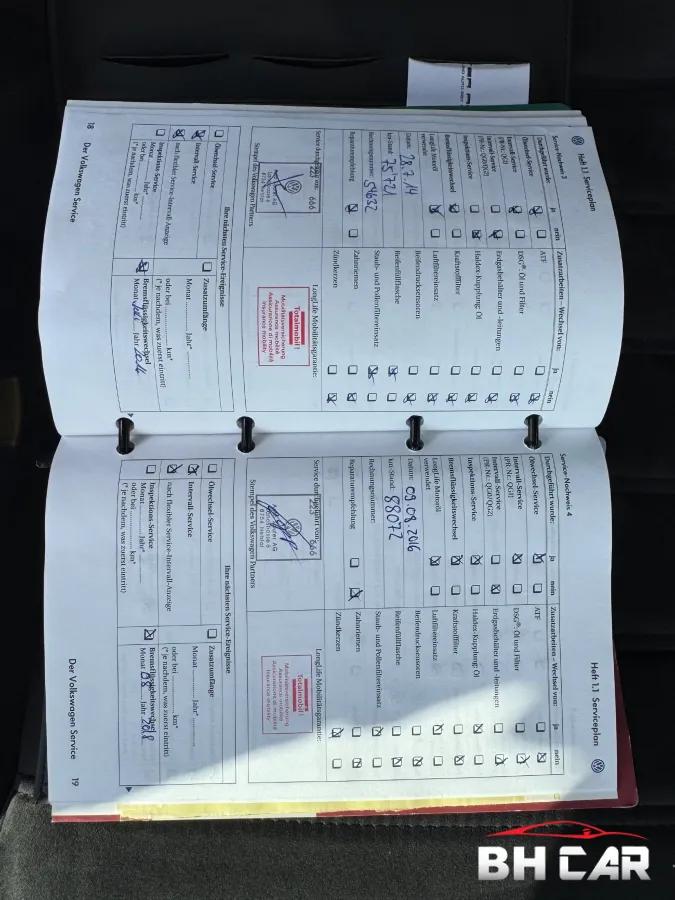 Heft 1.1 Serviceplan
Service-Nachweis 3
Durchgeführt wurde:
ja
nein
Ölwechsel-Service
Intervall-Service
(PR-Nr.: QG1)
Intervall-Service
(PR-Nr.: QG0/QG2)
Inspektions-Service
Bremsflüssigkeitswechsel
LongLife Motoröl
verwendet
Datum: 28.7.14
km-Stand: 75'721
Rechnungsnummer: 54632
Reparaturempfehlung
Service durchgeführt von:
666
Stempel des Volkswagen Partners
Zusatzarbeiten – Wechsel von:
ja
nein
ATF
DSG®: Öl und Filter
Erdgasbehälter und -leitungen
Haldex-Kupplung: Öl
Kraftstofffilter
Luftfiltereinsatz
Reifendrucksensoren
Reifenfüllflasche
Staub- und Pollenfiltereinsatz
Zahnriemen
Zündkerzen
LongLife Mobilitätsgarantie:
Totalmobil!
Mobilitätsversicherung
Assurance mobilité
Assicurazione di mobilità
Insurance mobility
Ihre nächsten Service-Ereignisse
Ölwechsel-Service
Intervall-Service
nach flexibler Service-Intervall-Anzeige
Inspektions-Service
Monat Jahr*
oder bei km*
(*je nachdem, was zuerst eintritt)
Zusatzumfänge
Monat Jahr*
oder bei km*
(*je nachdem, was zuerst eintritt)
Bremsflüssigkeitswechsel
Monat Jahr 2016
18 Der Volkswagen Service
Heft 1.1 Serviceplan
Service-Nachweis 4
Durchgeführt wurde:
ja
nein
Ölwechsel-Service
Intervall-Service
(PR-Nr.: QG1)
Intervall-Service
(PR-Nr.: QG0/QG2)
Inspektions-Service
Bremsflüssigkeitswechsel
LongLife Motoröl
verwendet
Datum: 09.08.2016
km-Stand: 88072
Rechnungsnummer:
Reparaturempfehlung
Service durchgeführt von:
666
Stempel des Volkswagen Partners
Zusatzarbeiten – Wechsel von:
ja
nein
ATF
DSG®: Öl und Filter
Erdgasbehälter und -leitungen
Haldex-Kupplung: Öl
Kraftstofffilter
Luftfiltereinsatz
Reifendrucksensoren
Reifenfüllflasche
Staub- und Pollenfiltereinsatz
Zahnriemen
Zündkerzen
LongLife Mobilitätsgarantie:
Totalmobil!
Mobilitätsversicherung
Assurance mobilité
Assicurazione di mobilità
Insurance mobility
Ihre nächsten Service-Ereignisse
Ölwechsel-Service
Intervall-Service
nach flexibler Service-Intervall-Anzeige
Inspektions-Service
Monat Jahr*
oder bei km*
(*je nachdem, was zuerst eintritt)
Zusatzumfänge
Monat Jahr*
oder bei km*
(*je nachdem, was zuerst eintritt)
Bremsflüssigkeitswechsel
Monat 08 Jahr 2018
Der Volkswagen Service 19
BH CAR